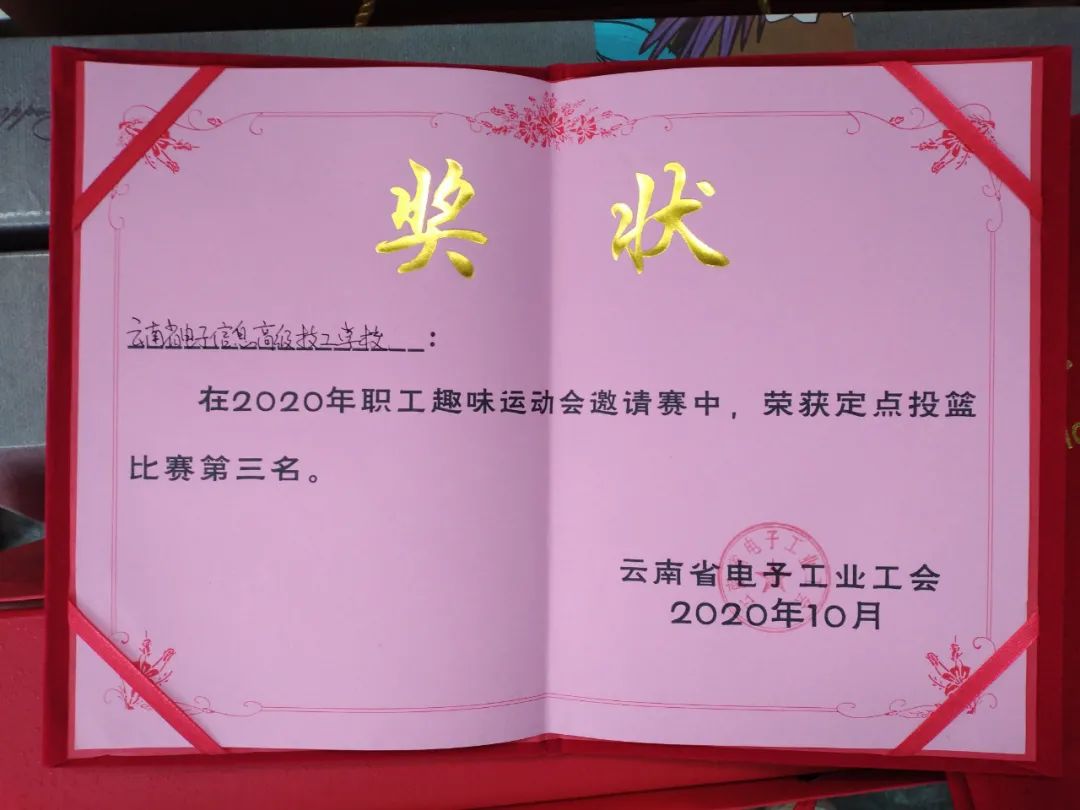 奖 状
云南省电子信息高级技工学校:
在2020年职工趣味运动会邀请赛中，荣获定点投篮
比赛第三名。
云南省电子工业工会
2020年10月